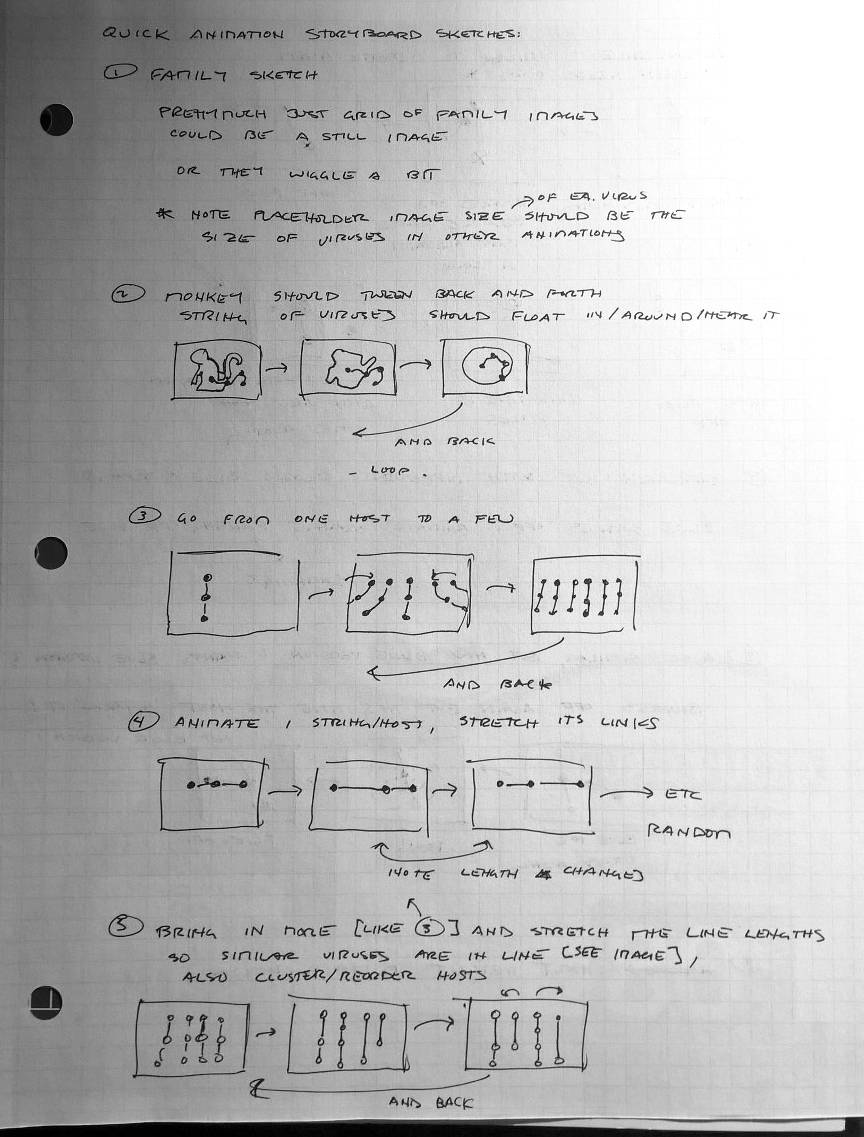 QUICK ANIMATION STORYBOARD SKETCHES:
① FAMILY SKETCH
PRETTY MUCH JUST GRID OF FAMILY IMAGES
COULD BE A STILL IMAGE
OR THEY WIGGLE A BIT
OF EA. VIRUS
* NOTE PLACEHOLDER IMAGE SIZE SHOULD BE THE
SIZE OF VIRUSES IN OTHER ANIMATIONS
② MONKEY SHOULD TWEEN BACK AND FORTH
STRING OF VIRUSES SHOULD FLOAT IN/AROUND/NEAR IT
AND BACK
- LOOP.
③ GO FROM ONE HOST TO A FEW
AND BACK
④ ANIMATE 1 STRING/HOST, STRETCH ITS LINKS
ETC
RANDOM
NOTE LENGTH CHANGES
⑤ BRING IN MORE [LIKE ③] AND STRETCH THE LINE LENGTHS
SO SIMILAR VIRUSES ARE IN LINE [SEE IMAGE],
ALSO CLUSTER/REORDER HOSTS
AND BACK